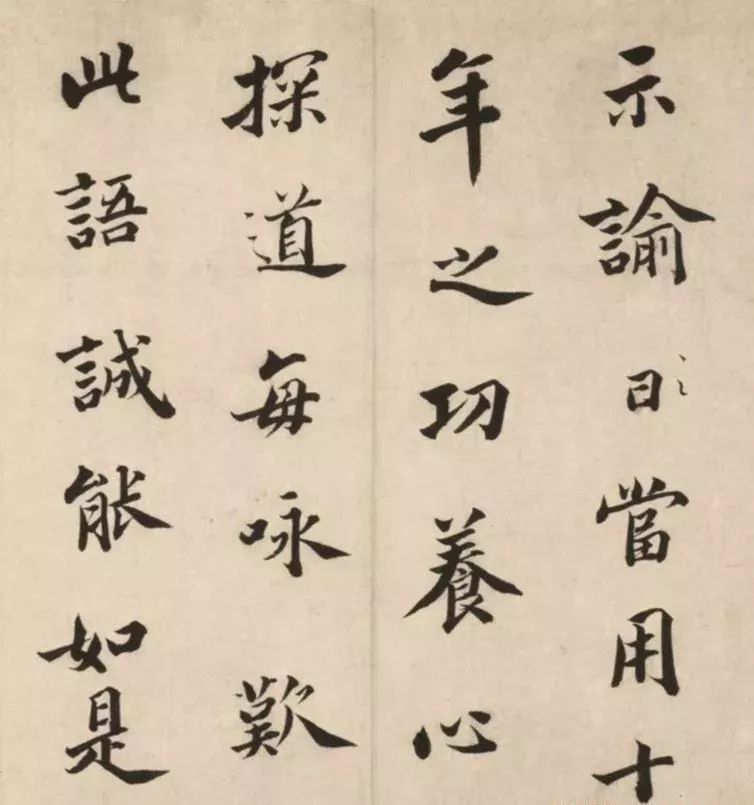 示諭曰當用十
年之功養心
探道每咏歎
此語誠能如是